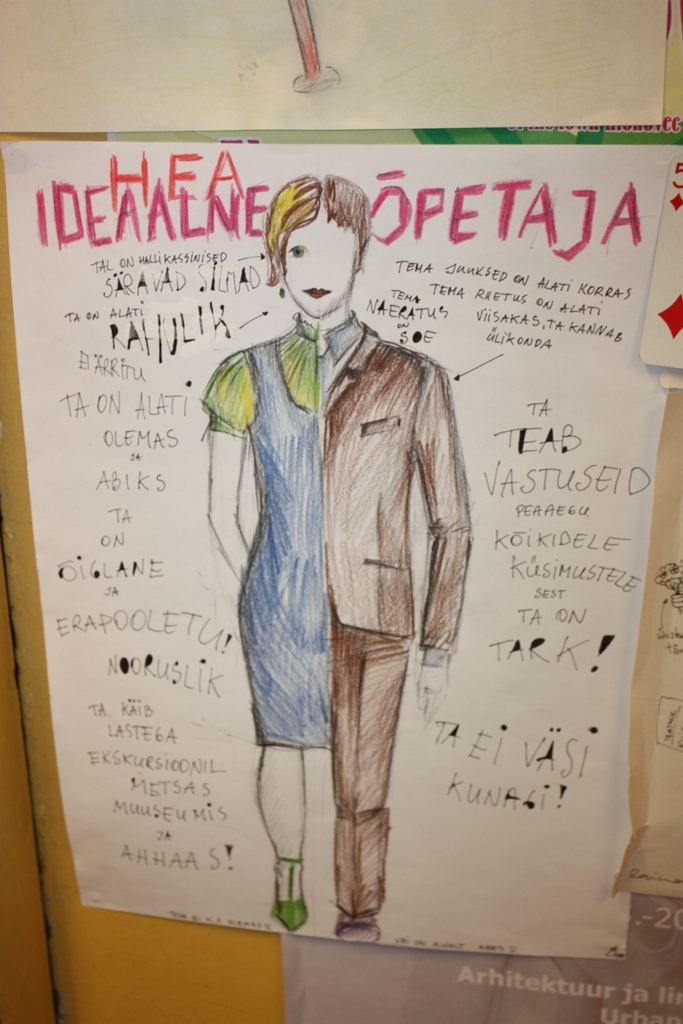 HEA
IDEAALNE ÕPETAJA
TAL ON HALLIKASSINISED
SÄRAVAD SILMAD
TA ON ALATI
RAHULIK
EI ÄRRITU
TA ON ALATI
OLEMAS
JA
ABIKS
TA
ON
ÕIGLANE
JA
ERAPOOLETU!
NOORUSLIK
TA KÄIB
LASTEGA
EKSKURSIOONIL
METSAS
MUUSEUMIS
JA
AHHAAS!
TEMA JUUKSED ON ALATI KORRAS
TEMA RIIETUS ON ALATI
VIISAKAS, TA KANNAB
ÜLIKONDA
TEMA
NAERATUS
ON
SOE
TA
TEAB
VASTUSEID
PEAAEGU
KÕIKIDELE
KÜSIMUSTELE
SEST
TA ON
TARK!
TA EI VÄSI
KUNAGI!
5
.-20
Arhitektuur ja
Urban